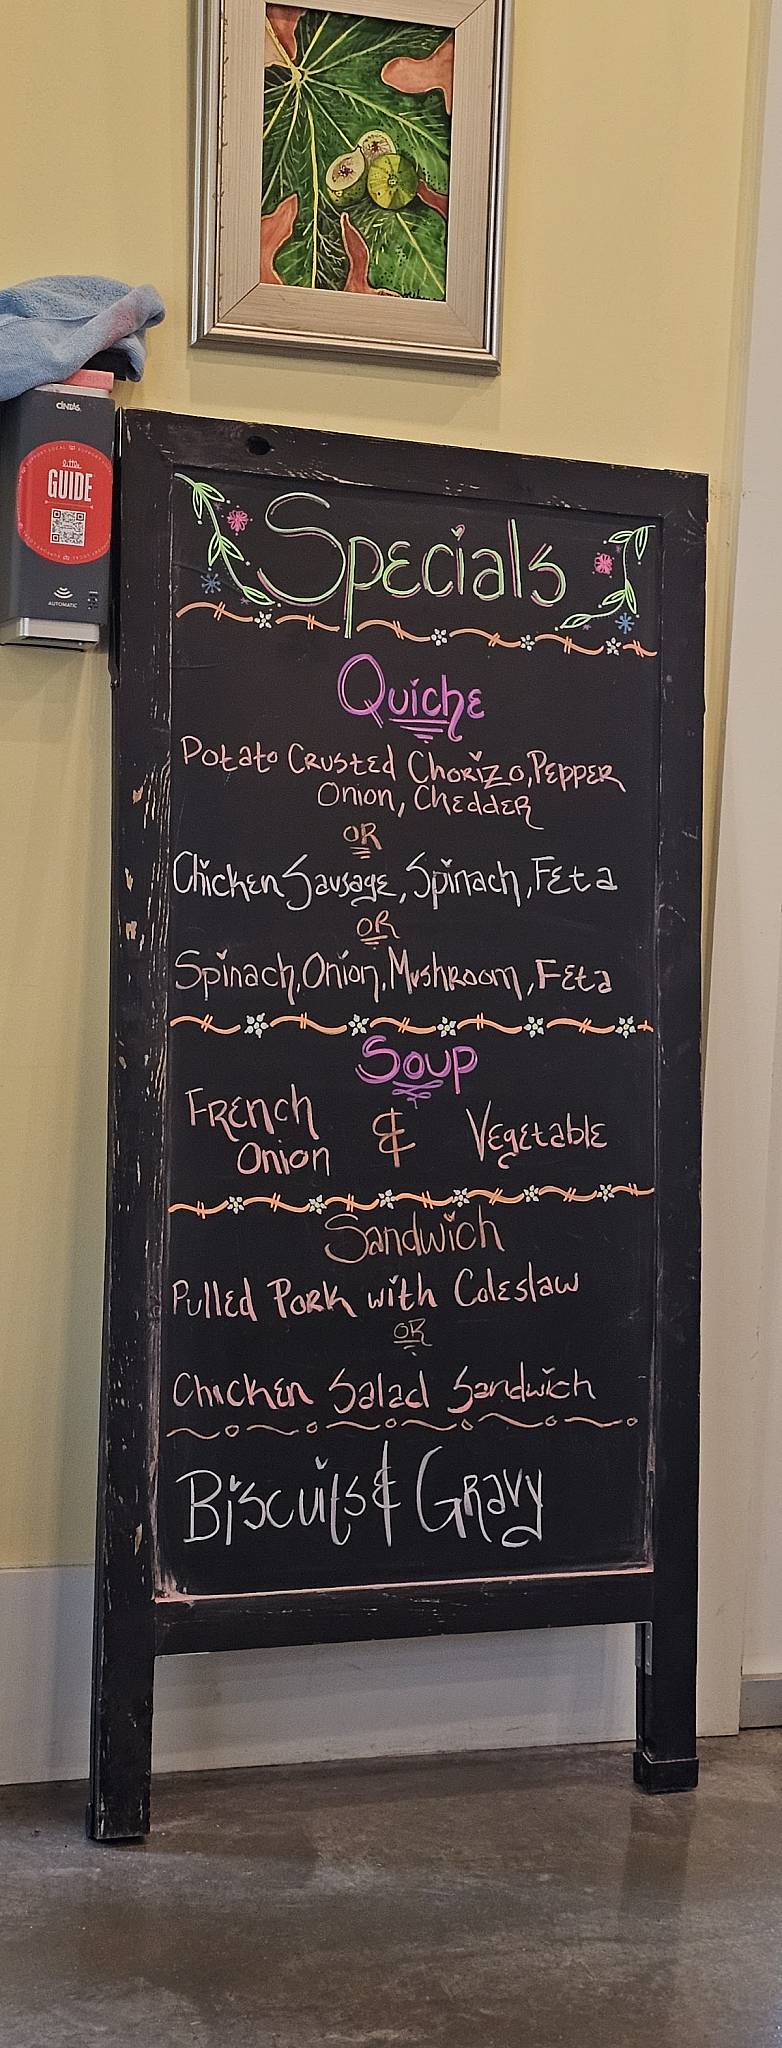 CINTAS
little
GUIDE
AUTOMATIC
Specials
Quiche
Potato Crusted Chorizo, Pepper
Onion, Chedder
OR
Chicken Sausage, Spinach, Feta
OR
Spinach, Onion, Mushroom, Feta
Soup
French & Vegetable
Onion
Sandwich
Pulled Pork with Coleslaw
OR
Chicken Salad Sandwich
Biscuits & Gravy